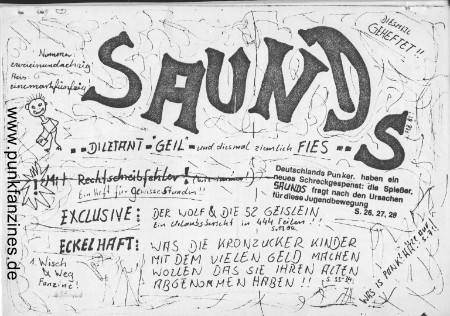 DIESMAL
GEHEFTET!!
Nummer
zweieinundachzig
Preis:
einemarkfünfzig
SAUNDS
--DILETANT-"GEIL"-und diesmal ziemlich FIES--
!Mit Rechtschreibfehler!
Ein Heft für gewisse Stunden!!
Deutschlands Punker. haben ein
neues Schreckgespenst: die Spießer.
SAUNDS fragt nach den Ursachen
für diese Jugendbewegung
S. 26, 27, 28
EXCLUSIVE: DER WOLF & DIE 52 GEISLEIN
Ein Urlaubsbericht in 444 Teilen!!
ECKELHAFT: WAS DIE KRONZUCKER KINDER
MIT DEM VIELEN GELD MACHEN
WOLLEN DAS SIE IHREN ALTEN
ABGENOMMEN HABEN!!
1. Wisch
& Weg
Fanzine!
WAS IS PUNK?
www.punkfanzines.de